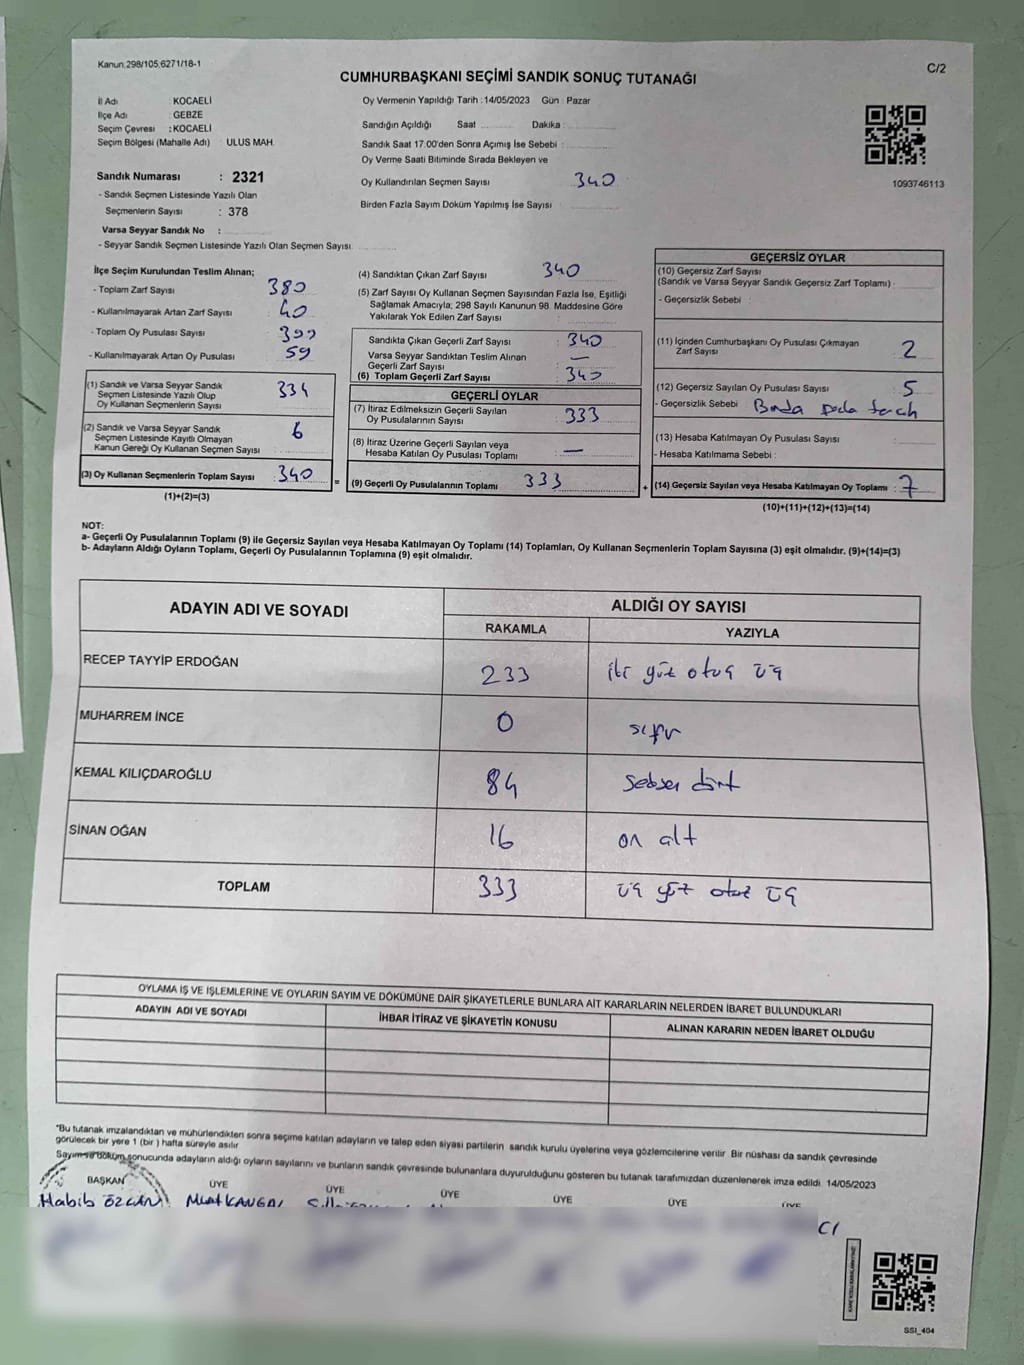 Kanun:298/105;6271/18-1
C/2
CUMHURBAŞKANI SEÇİMİ SANDIK SONUÇ TUTANAĞI
İl Adı : KOCAELİ
İlçe Adı : GEBZE
Seçim Çevresi : KOCAELİ
Seçim Bölgesi (Mahalle Adı) ULUS MAH.
Oy Vermenin Yapıldığı Tarih :14/05/2023 Gün : Pazar
Sandığın Açıldığı Saat ........ Dakika ........
Sandık Saat 17:00'den Sonra Açımış İse Sebebi :
Oy Verme Saati Bitiminde Sırada Bekleyen ve
Oy Kullandırılan Seçmen Sayısı 340
Birden Fazla Sayım Döküm Yapılmış İse Sayısı
1093746113
Sandık Numarası : 2321
- Sandık Seçmen Listesinde Yazılı Olan
Seçmenlerin Sayısı : 378
Varsa Seyyar Sandık No :
- Seyyar Sandık Seçmen Listesinde Yazılı Olan Seçmen Sayısı
İlçe Seçim Kurulundan Teslim Alınan;
- Toplam Zarf Sayısı 380
- Kullanılmayarak Artan Zarf Sayısı 40
- Toplam Oy Pusulası Sayısı 399
- Kullanılmayarak Artan Oy Pusulası 59
(1) Sandık ve Varsa Seyyar Sandık
Seçmen Listesinde Yazılı Olup
Oy Kullanan Seçmenlerin Sayısı 334
(2) Sandık ve Varsa Seyyar Sandık
Seçmen Listesinde Kayıtlı Olmayan
Kanun Gereği Oy Kullanan Seçmen Sayısı 6
(3) Oy Kullanan Seçmenlerin Toplam Sayısı : 340
(1)+(2)=(3)
(4) Sandıktan Çıkan Zarf Sayısı 340
(5) Zarf Sayısı Oy Kullanan Seçmen Sayısından Fazla İse, Eşitliği
Sağlamak Amacıyla; 298 Sayılı Kanunun 98. Maddesine Göre
Yakılarak Yok Edilen Zarf Sayısı
Sandıkta Çıkan Geçerli Zarf Sayısı : 340
Varsa Seyyar Sandıktan Teslim Alınan
Geçerli Zarf Sayısı : —
(6) Toplam Geçerli Zarf Sayısı : 340
GEÇERLİ OYLAR
(7) İtiraz Edilmeksizin Geçerli Sayılan
Oy Pusulalarının Sayısı : 333
(8) İtiraz Üzerine Geçerli Sayılan veya
Hesaba Katılan Oy Pusulası Toplamı : —
= (9) Geçerli Oy Pusulalarının Toplamı 333
GEÇERSİZ OYLAR
(10) Geçersiz Zarf Sayısı
(Sandık ve Varsa Seyyar Sandık Geçersiz Zarf Toplamı) :
- Geçersizlik Sebebi :
(11) İçinden Cumhurbaşkanı Oy Pusulası Çıkmayan
Zarf Sayısı 2
(12) Geçersiz Sayılan Oy Pusulası Sayısı : 5
- Geçersizlik Sebebi
(13) Hesaba Katılmayan Oy Pusulası Sayısı :
- Hesaba Katılmama Sebebi :
+ (14) Geçersiz Sayılan veya Hesaba Katılmayan Oy Toplamı : 7
(10)+(11)+(12)+(13)=(14)
NOT:
a- Geçerli Oy Pusulalarının Toplamı (9) ile Geçersiz Sayılan veya Hesaba Katılmayan Oy Toplamı (14) Toplamları, Oy Kullanan Seçmenlerin Toplam Sayısına (3) eşit olmalıdır. (9)+(14)=(3)
b- Adayların Aldığı Oyların Toplamı, Geçerli Oy Pusulalarının Toplamına (9) eşit olmalıdır.
ADAYIN ADI VE SOYADI
ALDIĞI OY SAYISI
RAKAMLA YAZIYLA
RECEP TAYYİP ERDOĞAN 233 iki yüz otuz üç
MUHARREM İNCE 0 sıfır
KEMAL KILIÇDAROĞLU 84 seksen dört
SİNAN OĞAN 16 on altı
TOPLAM 333 üç yüz otuz üç
OYLAMA İŞ VE İŞLEMLERİNE VE OYLARIN SAYIM VE DÖKÜMÜNE DAİR ŞİKAYETLERLE BUNLARA AİT KARARLARIN NELERDEN İBARET BULUNDUKLARI
ADAYIN ADI VE SOYADI İHBAR İTİRAZ VE ŞİKAYETİN KONUSU ALINAN KARARIN NEDEN İBARET OLDUĞU
*Bu tutanak imzalandıktan ve mühürlendikten sonra seçime katılan adayların ve talep eden siyasi partilerin sandık kurulu üyelerine veya gözlemcilerine verilir. Bir nüshası da sandık çevresinde
görülecek bir yere 1 (bir ) hafta süreyle asılır
Sayım ve döküm sonucunda adayların aldığı oyların sayılarını ve bunların sandık çevresinde bulunanlara duyurulduğunu gösteren bu tutanak tarafımızdan düzenlenerek imza edildi. 14/05/2023
BAŞKAN ÜYE ÜYE ÜYE ÜYE ÜYE ÜYE
Habib ÖZCAN Murat KANGAL
CI
SSI_404